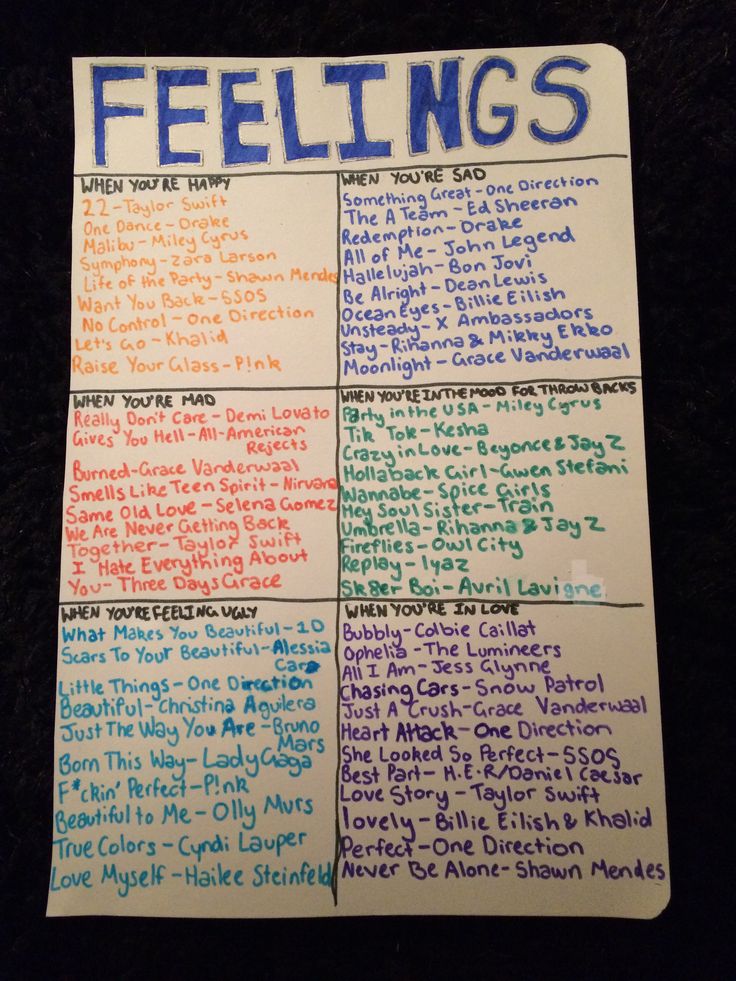 FEELINGS
WHEN YOU'RE HAPPY
22-Taylor Swift
One Dance-Drake
Malibu-Miley Cyrus
Symphony-Zara Larson
Life of the Party-Shawn Mendes
Want You Back-5SOS
No Control-One Direction
Let's Go-Khalid
Raise Your Glass-P!nk
WHEN YOU'RE SAD
Something Great-One Direction
The A Team-Ed Sheeran
Redemption-Drake
All of Me-John Legend
Hallelujah-Bon Jovi
Be Alright-Dean Lewis
Ocean Eyes-Billie Eilish
Unsteady-X Ambassadors
Stay-Rihanna & Mikky Ekko
Moonlight-Grace Vanderwaal
WHEN YOU'RE MAD
Really Don't Care-Demi Lovato
Gives You Hell-All-American
Rejects
Burned-Grace Vanderwaal
Smells Like Teen Spirit-Nirvana
Same Old Love-Selena Gomez
We Are Never Getting Back
Together-Taylor Swift
I Hate Everything About
You-Three Days Grace
WHEN YOU'RE IN THE MOOD FOR THROW BACKS
Party in the USA-Miley Cyrus
Tik Tok-Kesha
Crazy in Love-Beyonce & Jay Z
Hollaback Girl-Gwen Stefani
Wannabe-Spice Girls
Hey Soul Sister-Train
Umbrella-Rihanna & Jay Z
Fireflies-Owl City
Replay-Iyaz
Sk8er Boi-Avril Lavigne
WHEN YOU'RE FEELING UGLY
What Makes You Beautiful-1D
Scars To Your Beautiful-Alessia
Cara
Little Things-One Direction
Beautiful-Christina Aguilera
Just The Way You Are-Bruno
Mars
Born This Way-Lady Gaga
F*ckin' Perfect-P!nk
Beautiful to Me-Olly Murs
True Colors-Cyndi Lauper
Love Myself-Hailee Steinfeld
WHEN YOU'RE IN LOVE
Bubbly-Colbie Caillat
Ophelia-The Lumineers
All I Am-Jess Glynne
Chasing Cars-Snow Patrol
Just A Crush-Grace Vanderwaal
Heart Attack-One Direction
She Looked So Perfect-5SOS
Best Part-H.E.R/Daniel Caesar
Love Story-Taylor Swift
lovely-Billie Eilish & Khalid
Perfect-One Direction
Never Be Alone-Shawn Mendes